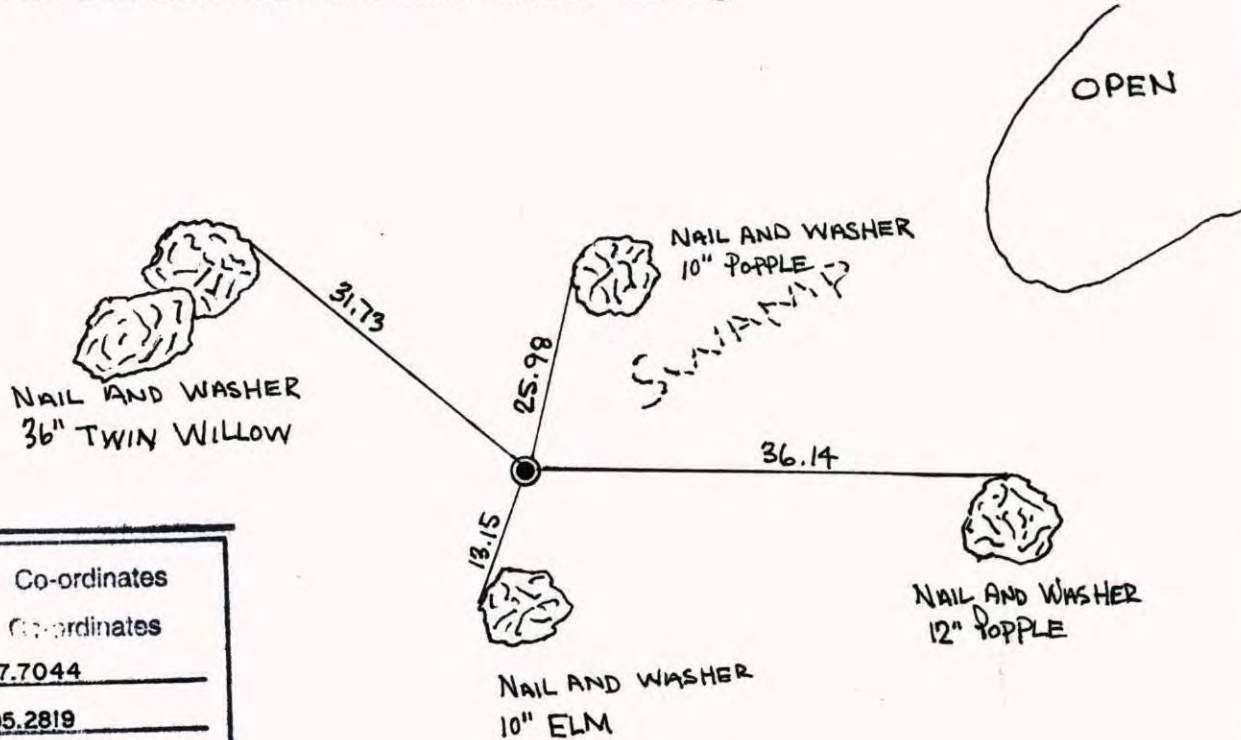 OPEN
NAIL AND WASHER
10" POPPLE
SWAMP
31.73
25.98
NAIL AND WASHER
36" TWIN WILLOW
36.14
13.15
NAIL AND WASHER
12" POPPLE
NAIL AND WASHER
10" ELM
Co-ordinates
Co-ordinates
7.7044
05.2819